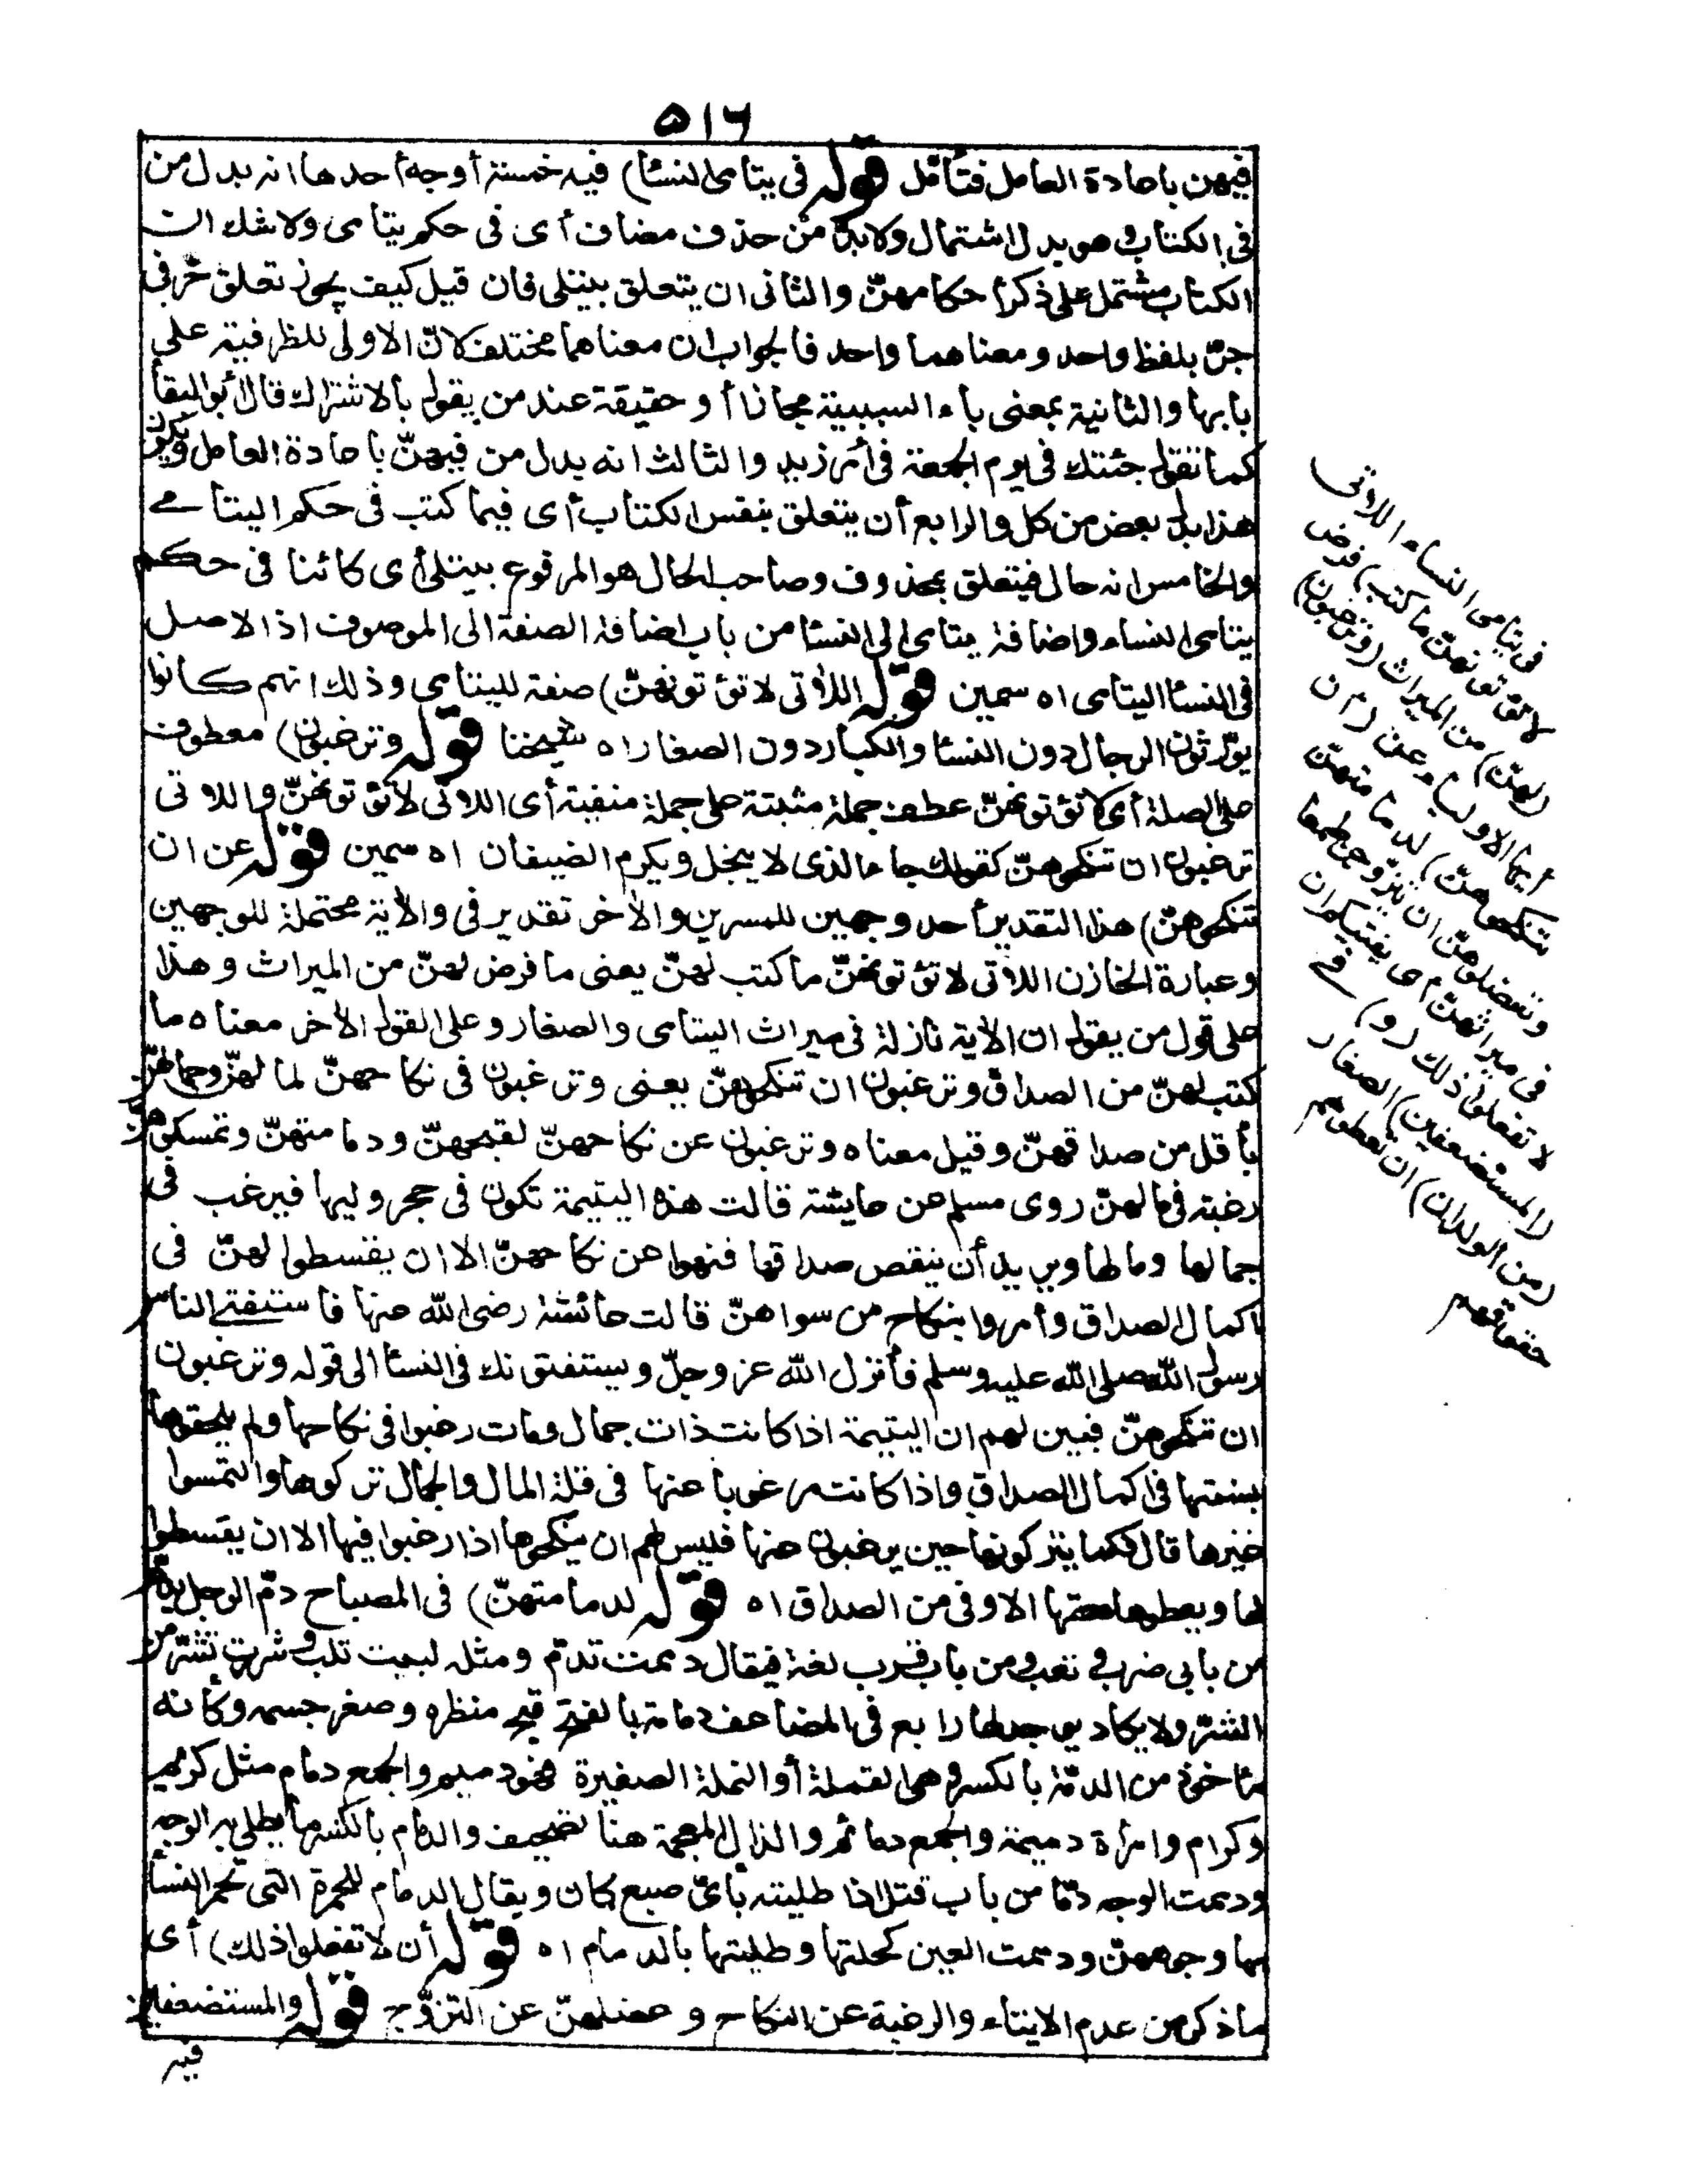 ٥١٦
فيهن باعادة العامل فتأمّل قوله في يتامى النسا) فيه خمسة أوجه أحدها انه بدل من
في الكتاب وهو بدل اشتمال ولابدّ من حذف مضاف أى فى حكم يتامى ولاشك ان
الكتاب مشتمل على ذكر أحكامهنّ والثانى ان يتعلق بيتلى فان قيل كيف يجوز تعلق حرفى
جرّ بلفظ واحد ومعناهما واحد فالجواب ان معناهما مختلف لانّ الاولى للظرفية على
بابها والثانية بمعنى باء السببية مجازا أو حقيقة عند من يقول بالاشتراك قال أبو البقا
كما تقول جئتك فى يوم الجمعة فى أمر زيد والثالث انه بدل من فيهنّ باعادة العامل ويكون
هذا بدل بعض من كل والرابع أن يتعلق بنفس الكتاب أى فيما كتب فى حكم اليتامى
والخامس انه حال فيتعلق بمحذوف وصاحب الحال هو المرفوع بيتلى أى كائنا فى حكم
يتامى النساء واضافة يتامى الى النسا من باب اضافة الصفة الى الموصوف اذ الاصل
فى النسا اليتامى اه سمين قوله اللاتى لاتؤتونهنّ) صفة لليتامى وذلك انهم كانوا
يورّثون الرجال دون النسا والكبار دون الصغار اه شيخنا قوله وترغبون) معطوف
على الصلة أى لاتؤتونهنّ عطف جملة مثبتة على جملة منفية أى اللاتى لاتؤتونهنّ واللاتى
ترغبون ان تنكحوهنّ كقولك جاء الذى لا يبخل ويكرم الضيفان اه سمين قوله عن ان
تنكحوهنّ) هذا التقدير أحد وجهين للمسرين والآخر تقدير فى والآية محتملة للوجهين
وعبارة الخازن اللاتى لاتؤتونهنّ ماكتب لهنّ يعنى ما فرض لهنّ من الميراث وهذا
على قول من يقول ان الآية نازلة فى ميراث اليتامى والصغار وعلى القول الآخر معناه ما
كتب لهنّ من الصداق وترغبون ان تنكحوهنّ يعنى وترغبون فى نكاحهنّ لمالهنّ وجمالهنّ
بأقل من صداقهنّ وقيل معناه وترغبون عن نكاحهنّ لقبحهنّ ودمامتهنّ وتمسكوهنّ
رغبة فى مالهنّ روى مسلم عن عايشة قالت هذه اليتيمة تكون فى حجر وليها فيرغب فى
جمالها ومالها ويريد أن ينقص صداقها فنهوا عن نكاحهنّ الا ان يقسطوا لهنّ فى
اكمال الصداق وأمروا بنكاح من سواهنّ قالت عائشة رضى الله عنها فاستفتى الناس
رسول الله صلى الله عليه وسلم فأنزل الله عز وجلّ ويستفتونك فى النسا الى قوله وترغبون
ان تنكحوهنّ فبين لهم ان اليتيمة اذا كانت ذات جمال ومات رغبوا فى نكاحها ولم يلحقوها
بسنتها فى اكمال الصداق واذا كانت مرغوبا عنها فى قلة المال والجمال تركوها والتمسوا
غيرها قال فكما يتركونها حين يرغبون عنها فليس لهم ان ينكحوها اذا رغبوا فيها الا ان يقسطوا
لها ويعطوها حقها الاوفى من الصداق اه قوله لدمامتهنّ) فى المصباح دمّ الرجل يدم
من بابى ضرب وتعب ومن باب قرب لغة فيقال دممت تدمّ ومثله لببت تلب وشررت تشرّ من
الشرّ ولايكاد يوجد لها رابع فى المضاعف دمامة بالفتح قبح منظره وصغر جسمه وكأنه
مأخوذ من الدمّة بالكسر وهى القملة أو النملة الصغيرة فهو دميم والجمع دمام مثل كريم
وكرام وامرأة دميمة والجمع دمائم والذال المعجمة هنا تصحيف والدمام بالكسر ما يطلى به الوجه
ودممت الوجه دمّا من باب قتل اذا طليته بأىّ صبغ كان ويقال الدمام للحمرة التى تحمر النسا
بها وجوههنّ ودممت العين كحلتها وطليتها بالدمام اه قوله أن لاتفعلوا ذلك) أى
ماذكر من عدم الايتاء والرغبة عن النكاح وعضلهنّ عن التزوّج قوله والمستضعفين
فيه
فى يتامى النساء اللاتى
لاتؤتونهنّ ماكتب) فرض
(لهنّ) من الميراث (وترغبون)
أيها الاولياء عن (ان
تنكحوهنّ) لدمامتهنّ
وتعضلوهنّ ان يتزوجن طمعا
فى ميراثهنّ أى يفتيكم ان
لاتفعلوا ذلك (و) فى
(المستضعفين) الصغار
(من الولدان) ان تعطوهم
حقوقهم